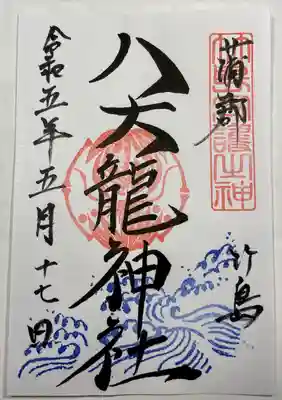 蒲郡
竹島
八大龍神社
令和五年五月十七日